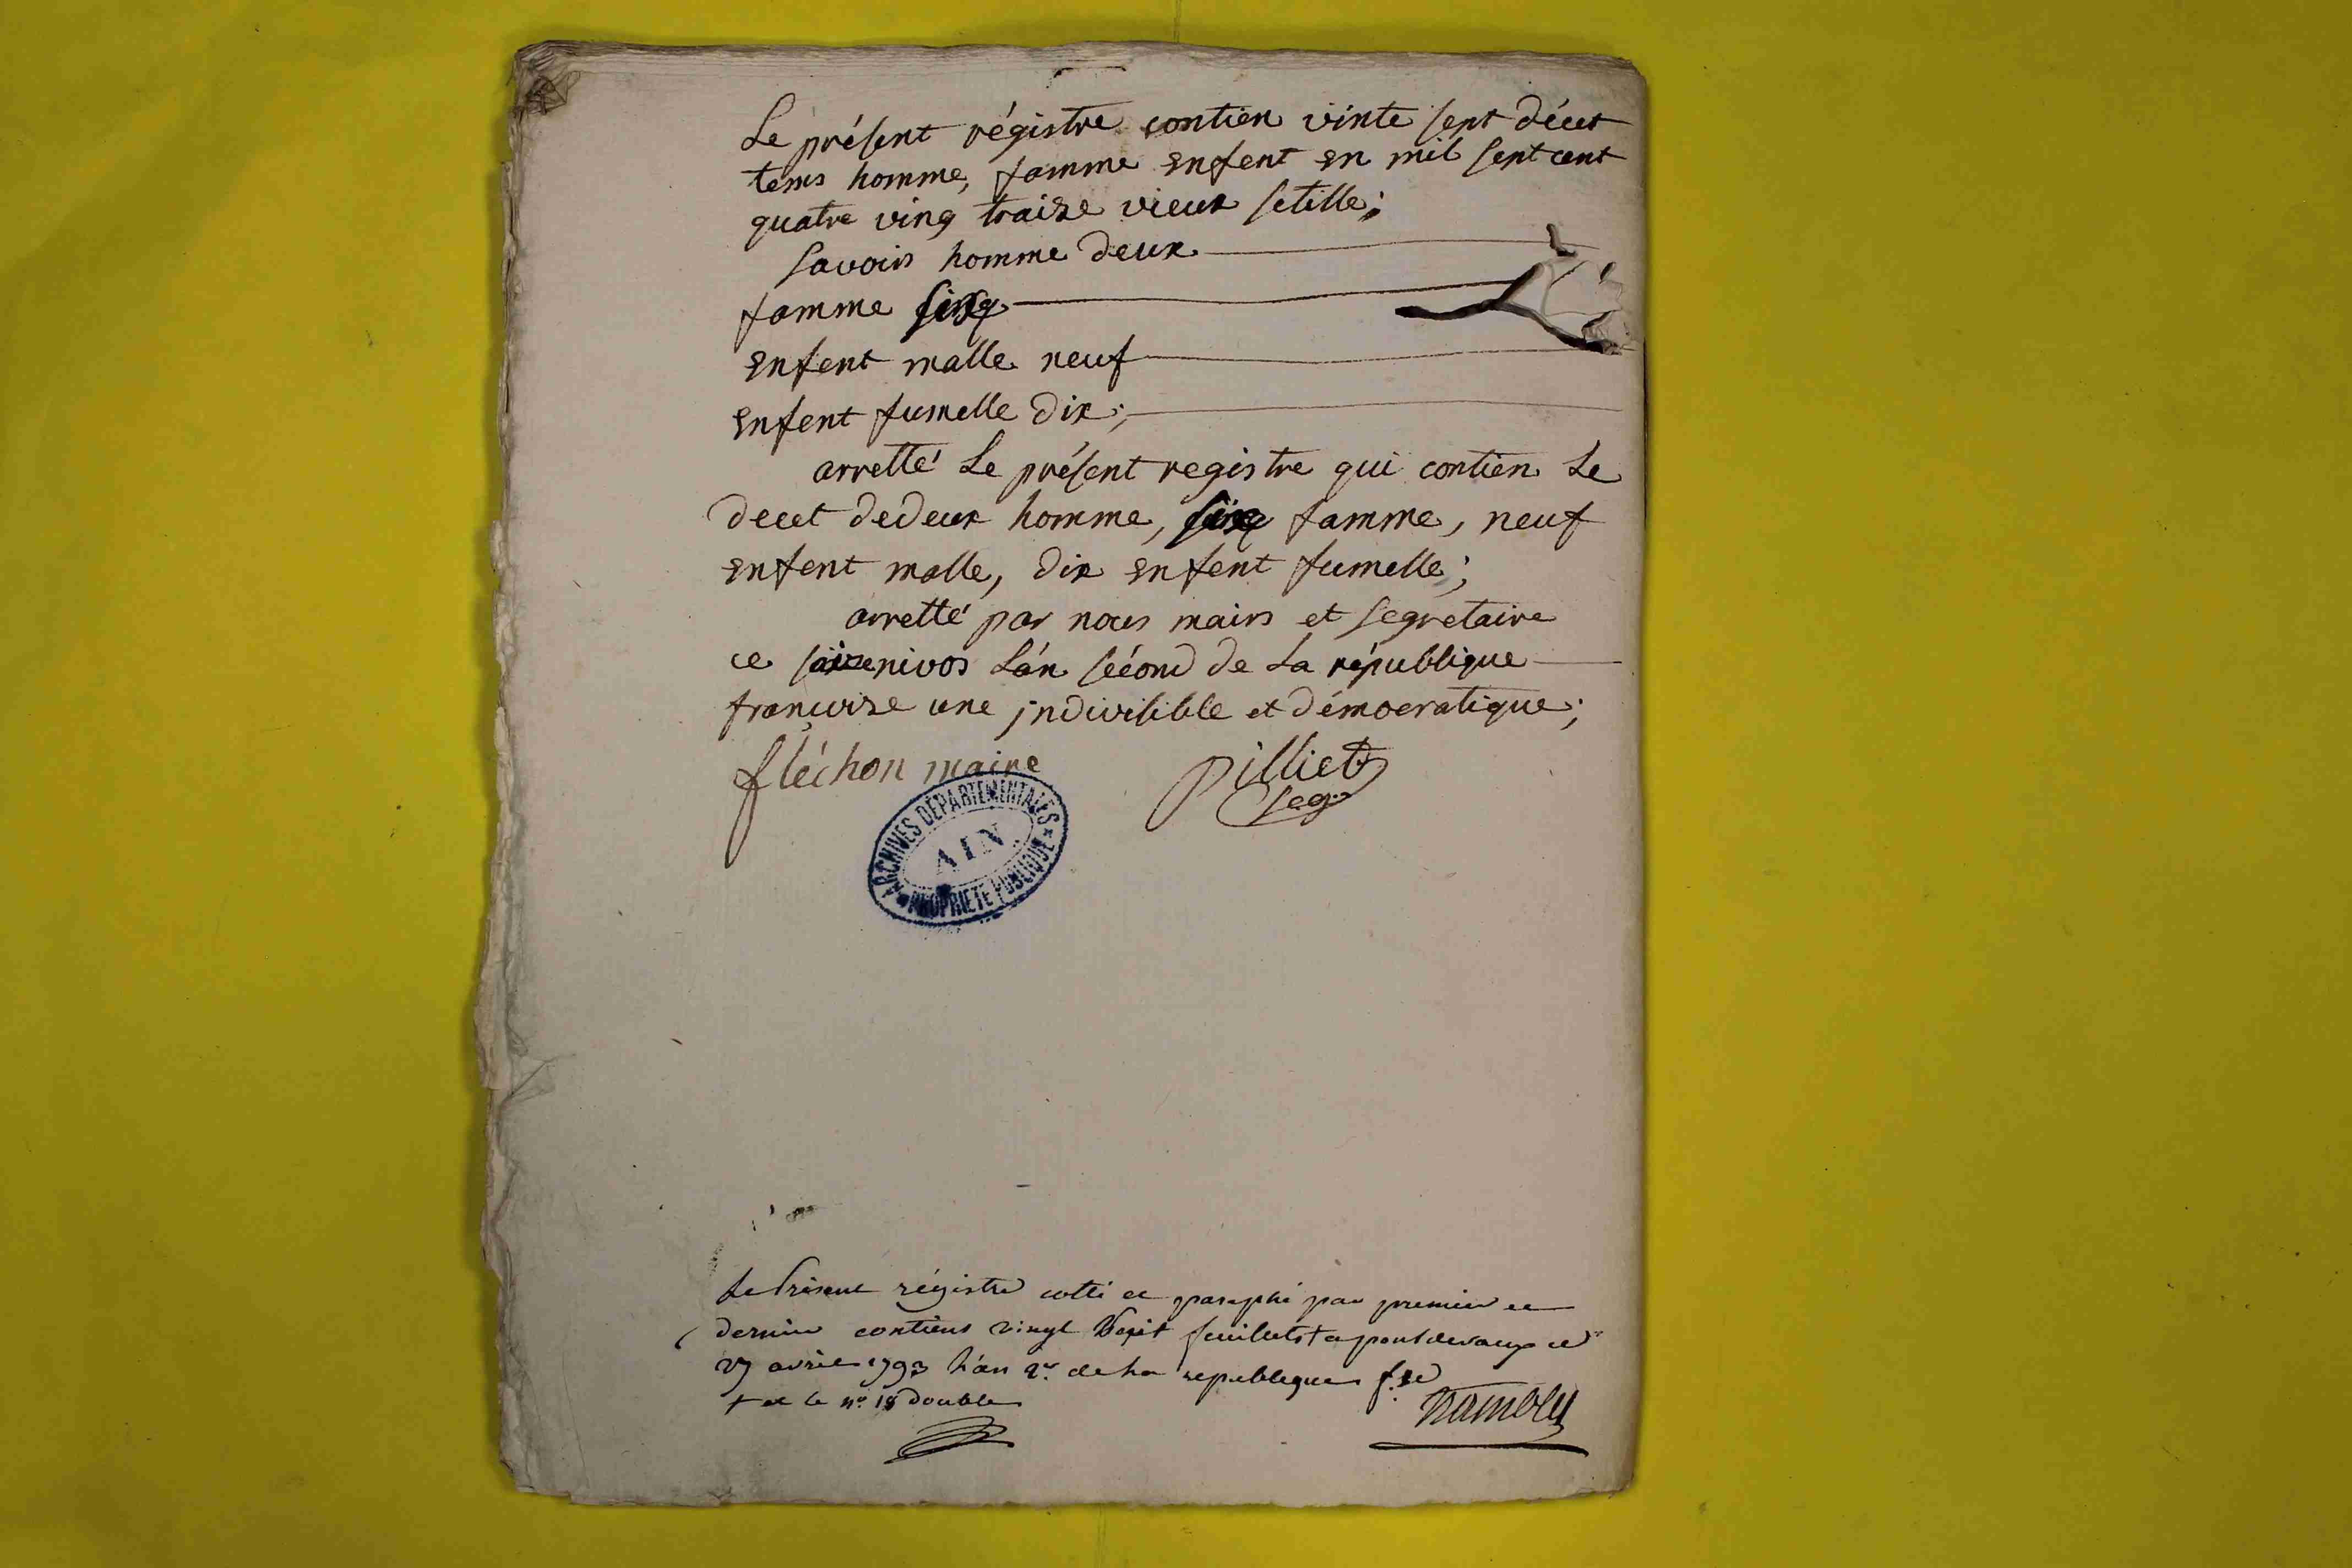 Le présent régistre contien vinte sept décet
tems homme, famme enfent en mil sept cent
quatre ving traize vieux setille;
savoirs homme deux
famme sinq
enfent malle neuf
enfent fumelle dix;
arretté Le présent registre qui contien Le
decet dedeux homme, sinq famme, neuf
enfent malle, dix enfent fumelle;
arretté par nous mairs et segretaire
ce saizenivos Lán sécond de La république
françoise une jndivisible et démocratique;
fléchon maire
pilliet
seg.
ARCHIVES DÉPARTEMENTALES
AIN
PROPRIETE PUBLIQUE
Le Présent régistre cotté et paraphé par premier et
dernier contient vingt sept feuillets + a pontdevaux ce
27 avril 1793 L'an 2e. de La republique f.se
+ et le no. 18 double